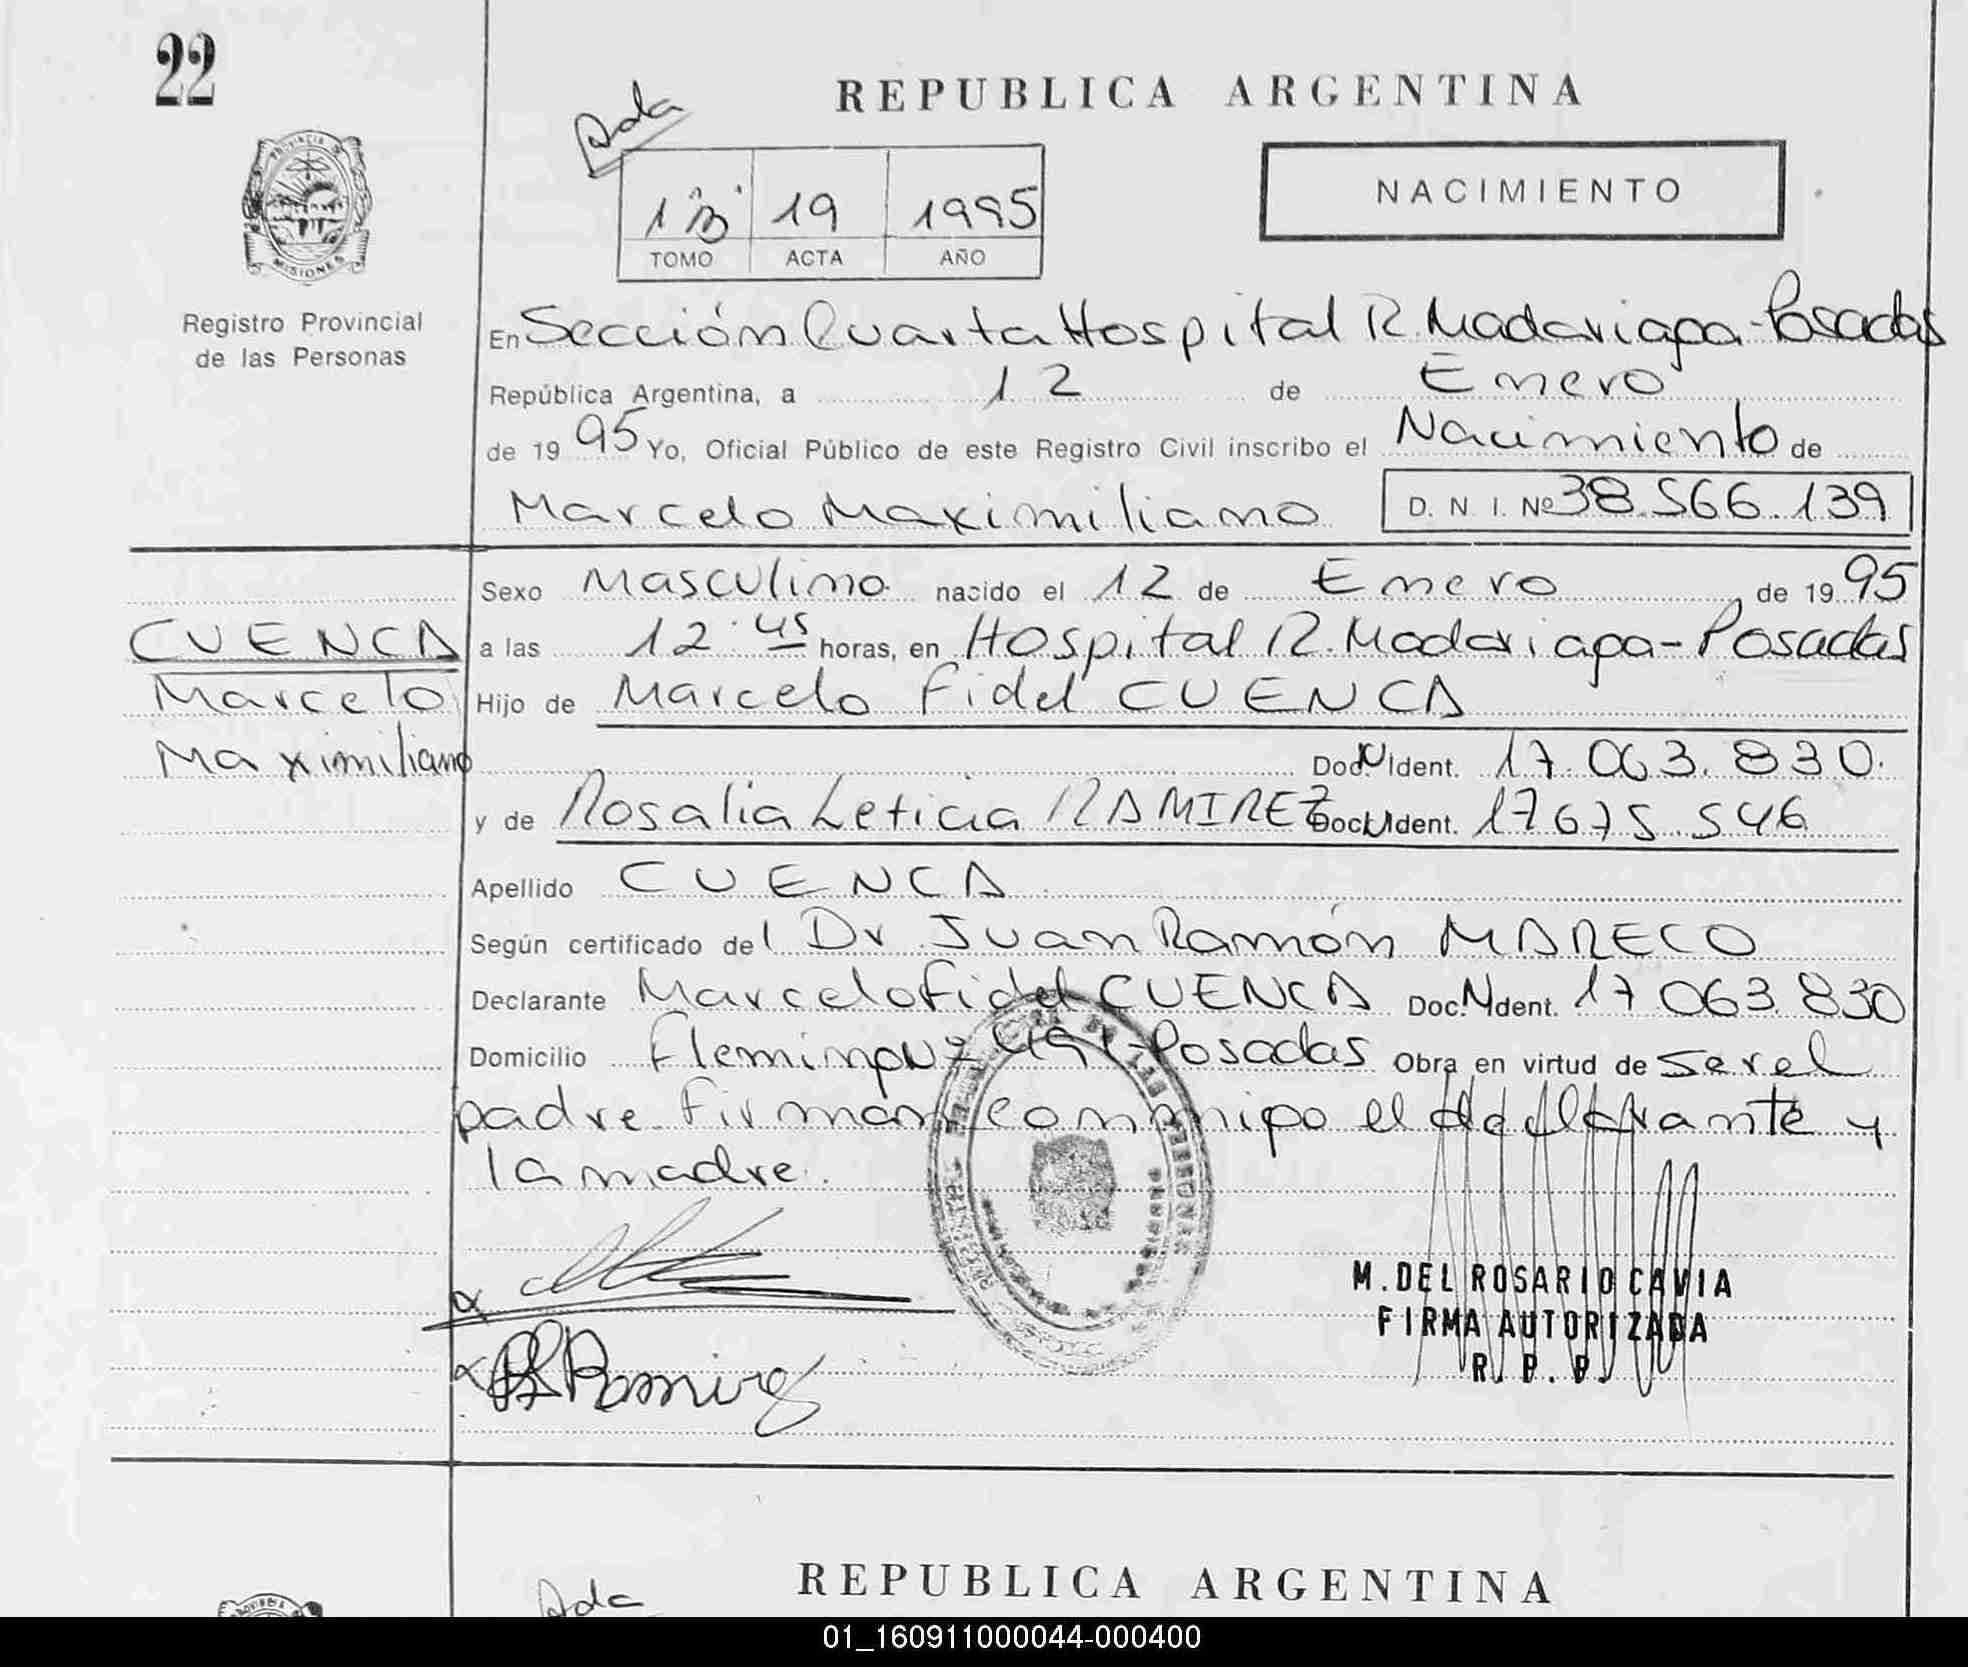 22
REPUBLICA ARGENTINA
Ada
1 "B" 19 1995
TOMO ACTA AÑO
NACIMIENTO
PROVINCIA DE
MISIONES
Registro Provincial
de las Personas
En Sección Cuarta Hospital R. Madariaga - Posadas
República Argentina, a 12 de Enero
de 19 95 Yo, Oficial Público de este Registro Civil inscribo el Nacimiento de
Marcelo Maximiliano D. N. I. Nº 38.566.139
Sexo Masculino nacido el 12 de Enero de 19 95
CUENCA
Marcelo
Maximiliano
a las 12:45 horas, en Hospital R. Madariaga - Posadas
Hijo de Marcelo Fidel CUENCA
Doc. N Ident. 17.063.830.
y de Rosalia Leticia RAMIREZ Doc. N Ident. 17675.546
Apellido CUENCA
Según certificado del Dr Juan Ramón MARECO
Declarante Marcelo Fidel CUENCA Doc. N Ident. 17 063.830
Domicilio Posadas Obra en virtud de ser el
padre. Firman conmigo el declarante y
la madre.
M. DEL ROSARIO CAVIA
FIRMA AUTORIZADA
R. P. P.
Ramirez
REPUBLICA ARGENTINA
Ada
01_160911000044-000400